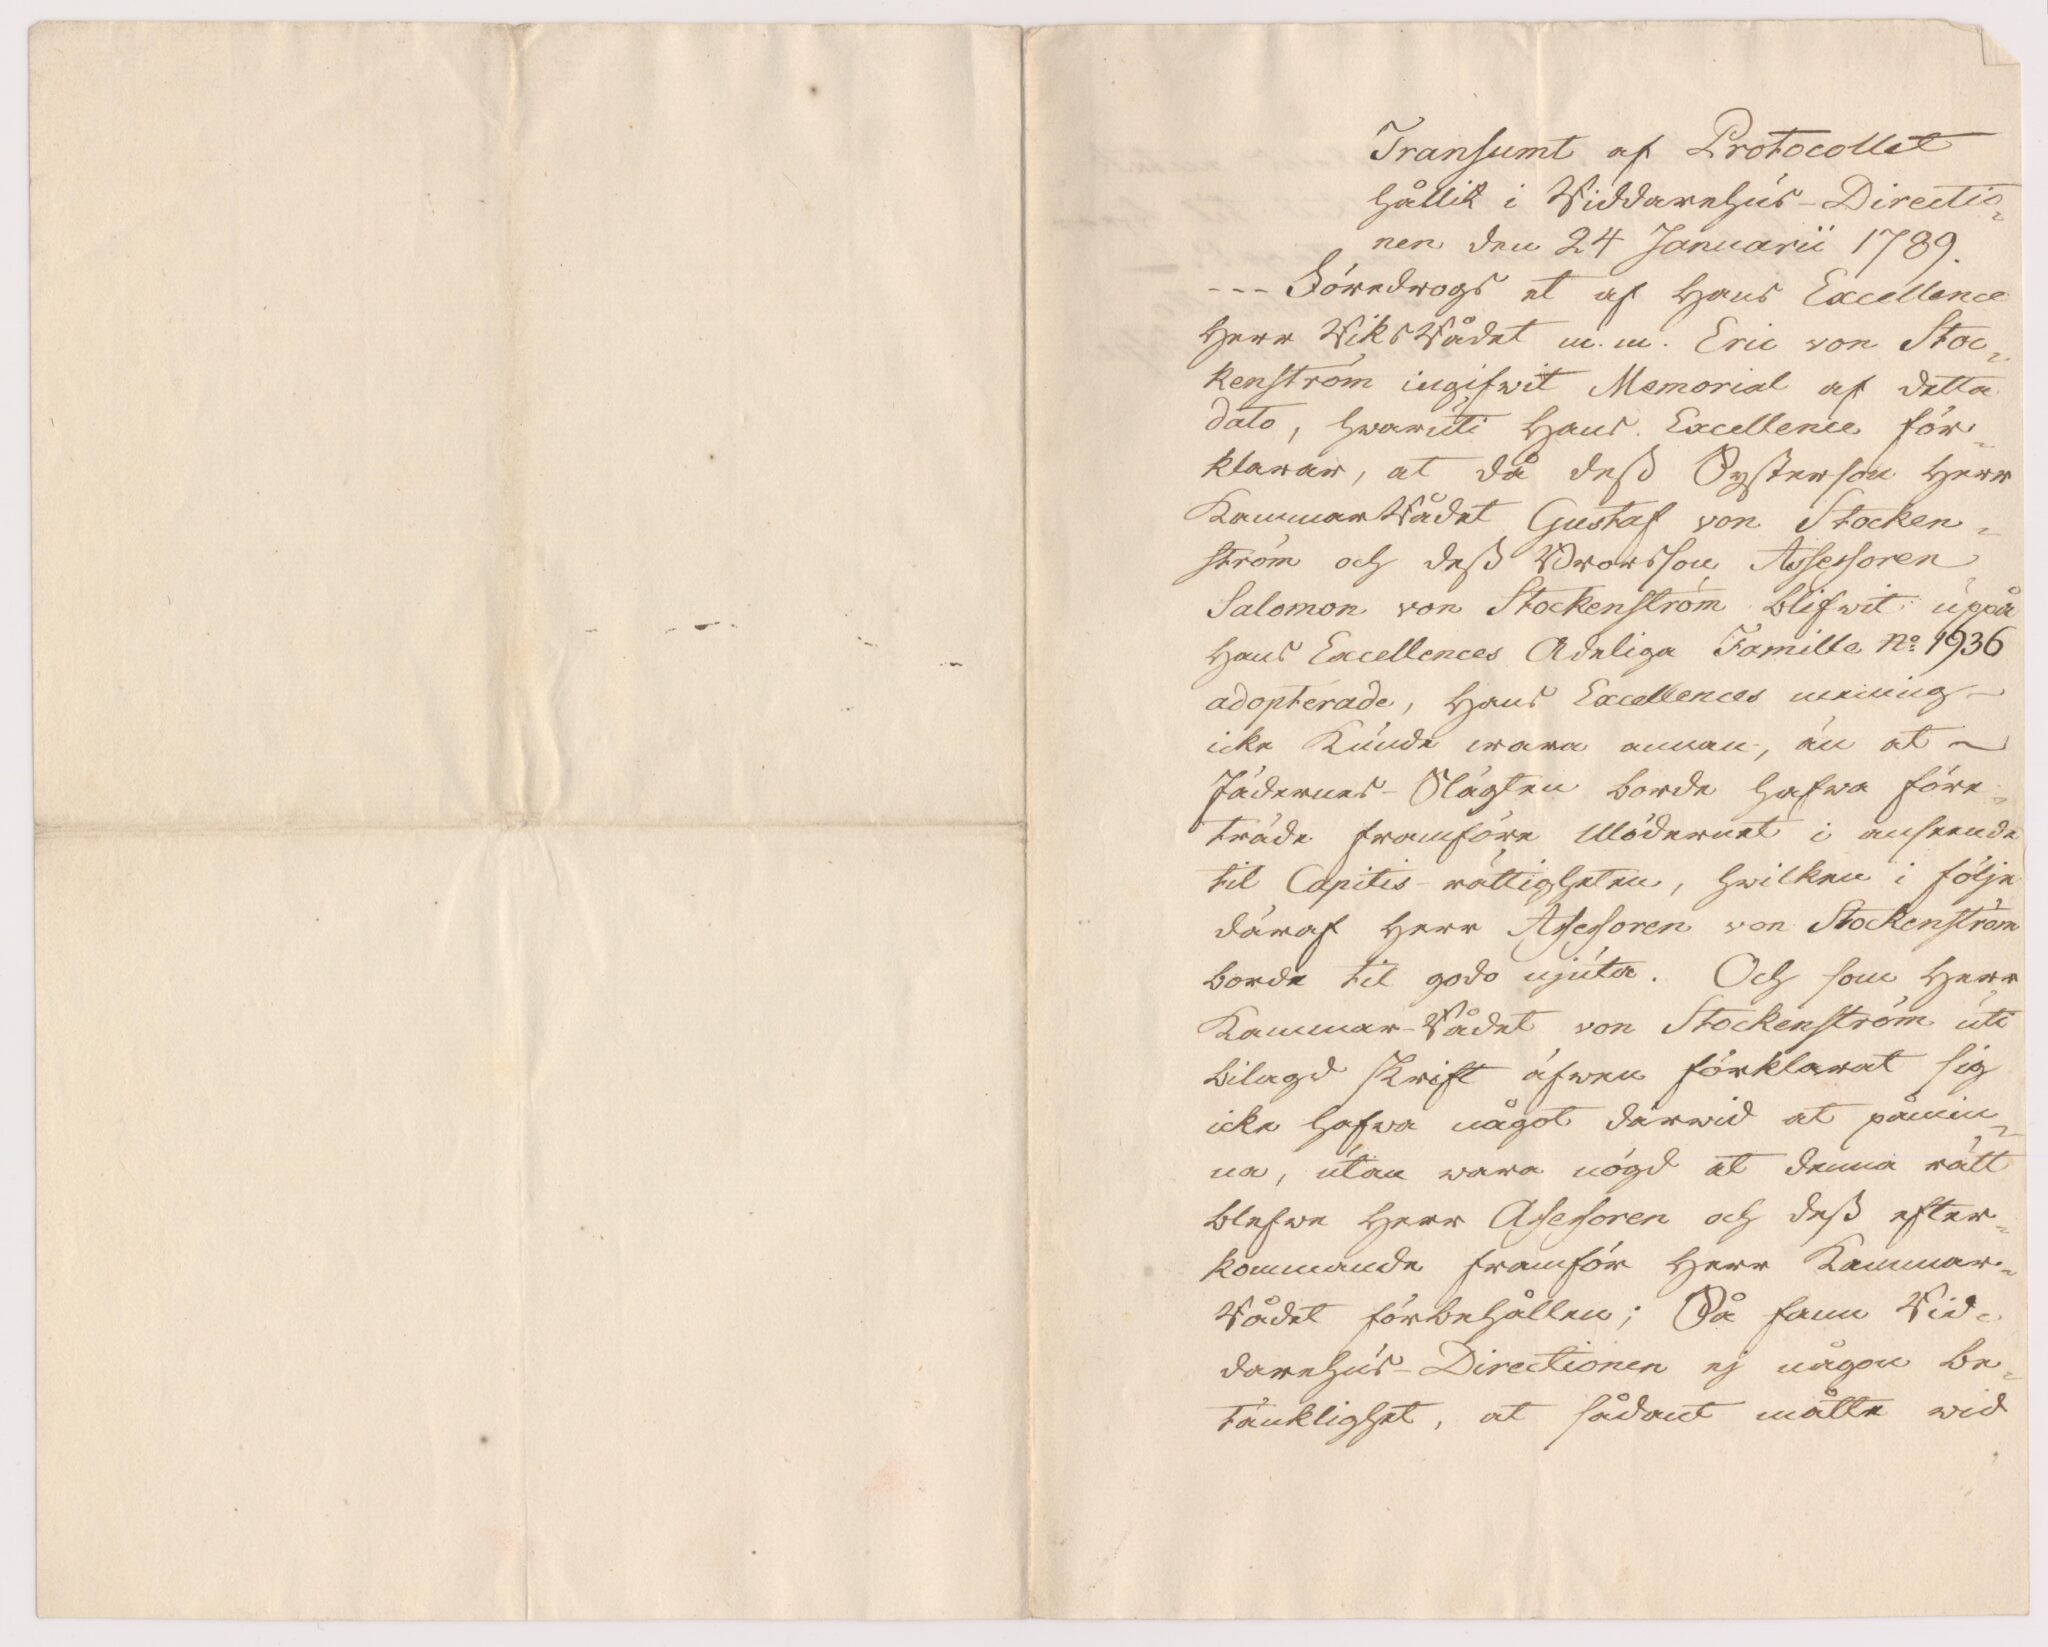 Transumt af Protocollet
hållit i Riddarehus-Directio-
nen den 24 Januarii 1789.
--- Föredrogs et af Hans Excellence
Herr RiksRådet m.m. Eric von Stoc-
kenström ingifwit Memorial af detta
dato, hwaruti Hans Excellence för-
klarar, at då deß Systerson Herr
KammarRådet Gustaf von Stocken-
ström och deß Brorsson Assessoren
Salomon von Stockenström blifwit uppå
Hans Excellences Adeliga Famille No 1936
adopterade, Hans Excellences mening
icke kunde wara annan, än at
Fädernes-Slägten borde hafwa före-
träde framföre Mödernet i anseende
til Capitis-rättigheten, hwilken i följe
däraf Herr Assessoren von Stockenström
borde til godo njuta. Och som Herr
Kammar-Rådet von Stockenström uti
bilagd skrift äfwen förklarat sig
icke hafwa något därwid at påmin-
na, utan wara nögd at denna rätt
blefwe Herr Assessoren och deß efter-
kommande framför Herr Kammar-
Rådet förbehållen; Så fann Rid-
darehus-Directionen ej någon be-
tänklighet, at sådant måtte wid